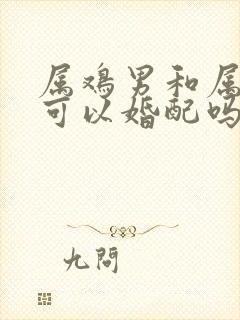 属鸡男和属
可以婚配吗
九問